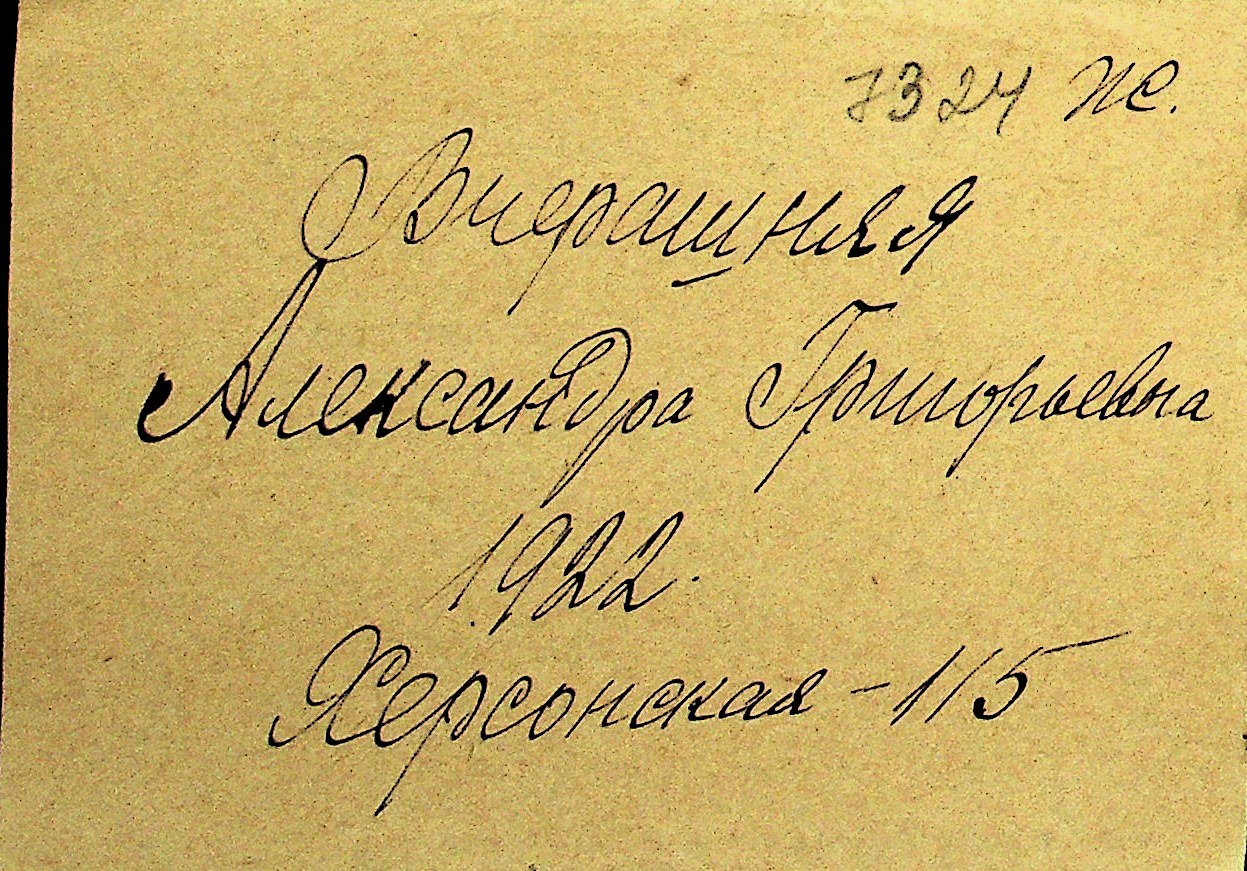 7324 пс.
Вчерашняя
Александра Григорьевна
1922.
Херсонская - 115